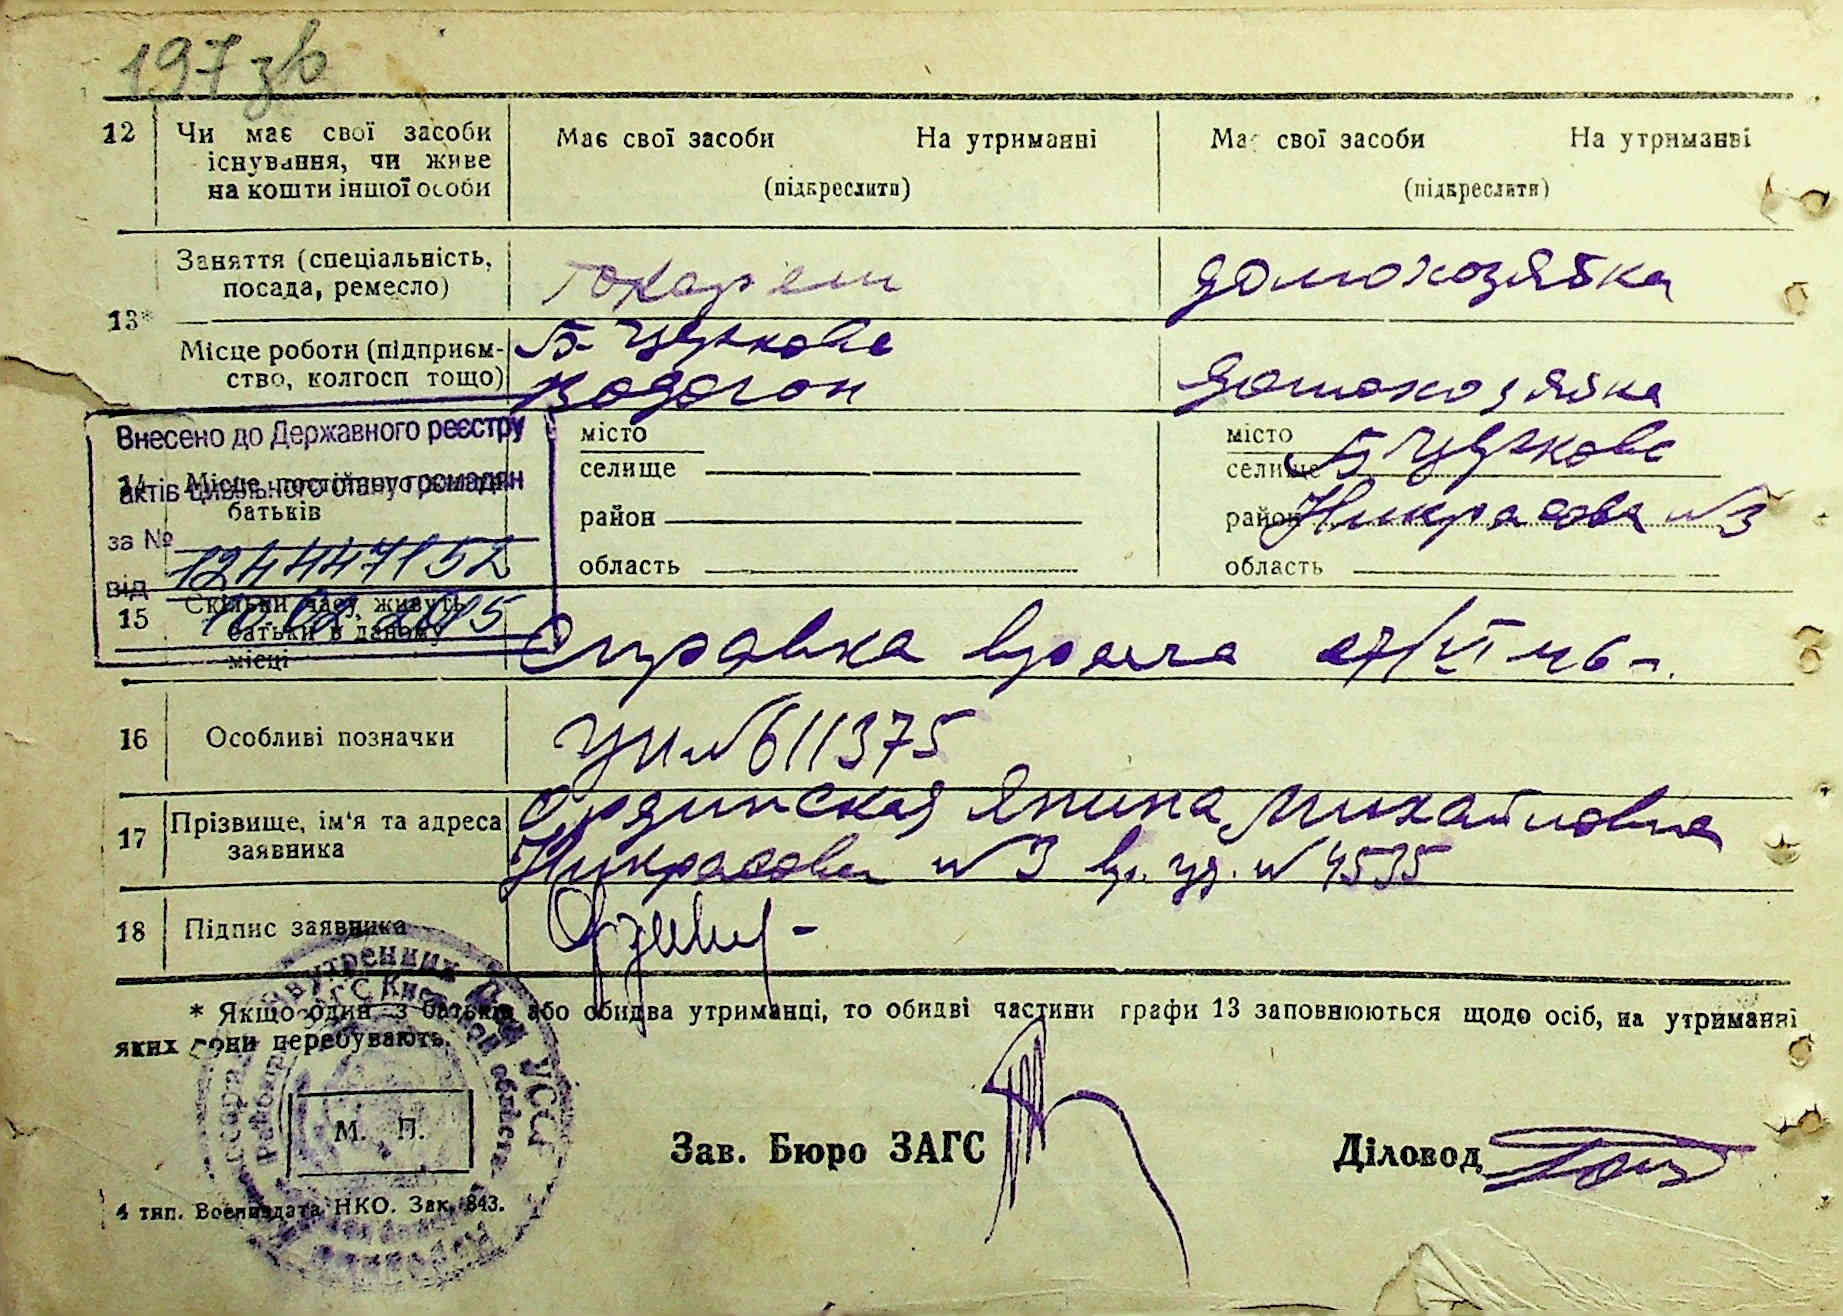 197 зв
12 Чи має свої засоби існування, чи живе на кошти іншої особи
Має свої засоби На утриманні
(підкреслити)
Має свої засоби На утриманні
(підкреслити)
13*
Заняття (спеціальність, посада, ремесло)
Токарем
домохозяйка
Місце роботи (підприєм-
ство, колгосп тощо)
Б-Церкова
Вадагон
домохозяйка
Внесено до Державного реєстру
актів цивільного стану громадян
за № 1244447152
від 10.02.2015
14 Місце постійного
батьків
місто
селище
район
область
місто Б Церкова
селище
район Никрасова №3
область
15 Скільки часу живуть
батьки в даному
місці
Справка врача 27/VI 46-.
16 Особливі позначки
УН №611375
17 Прізвище, ім'я та адреса
заявника
Янина Михайловна
Никрасова №3 вр. уд. №4535
18 Підпис заявника
* Якщо один з батьків або обидва утриманці, то обидві частини графи 13 заповнюються щодо осіб, на утриманні
яких вони перебувають.
М. П.
Зав. Бюро ЗАГС
Діловод
4 тип. Воениздата НКО. Зак. 843.